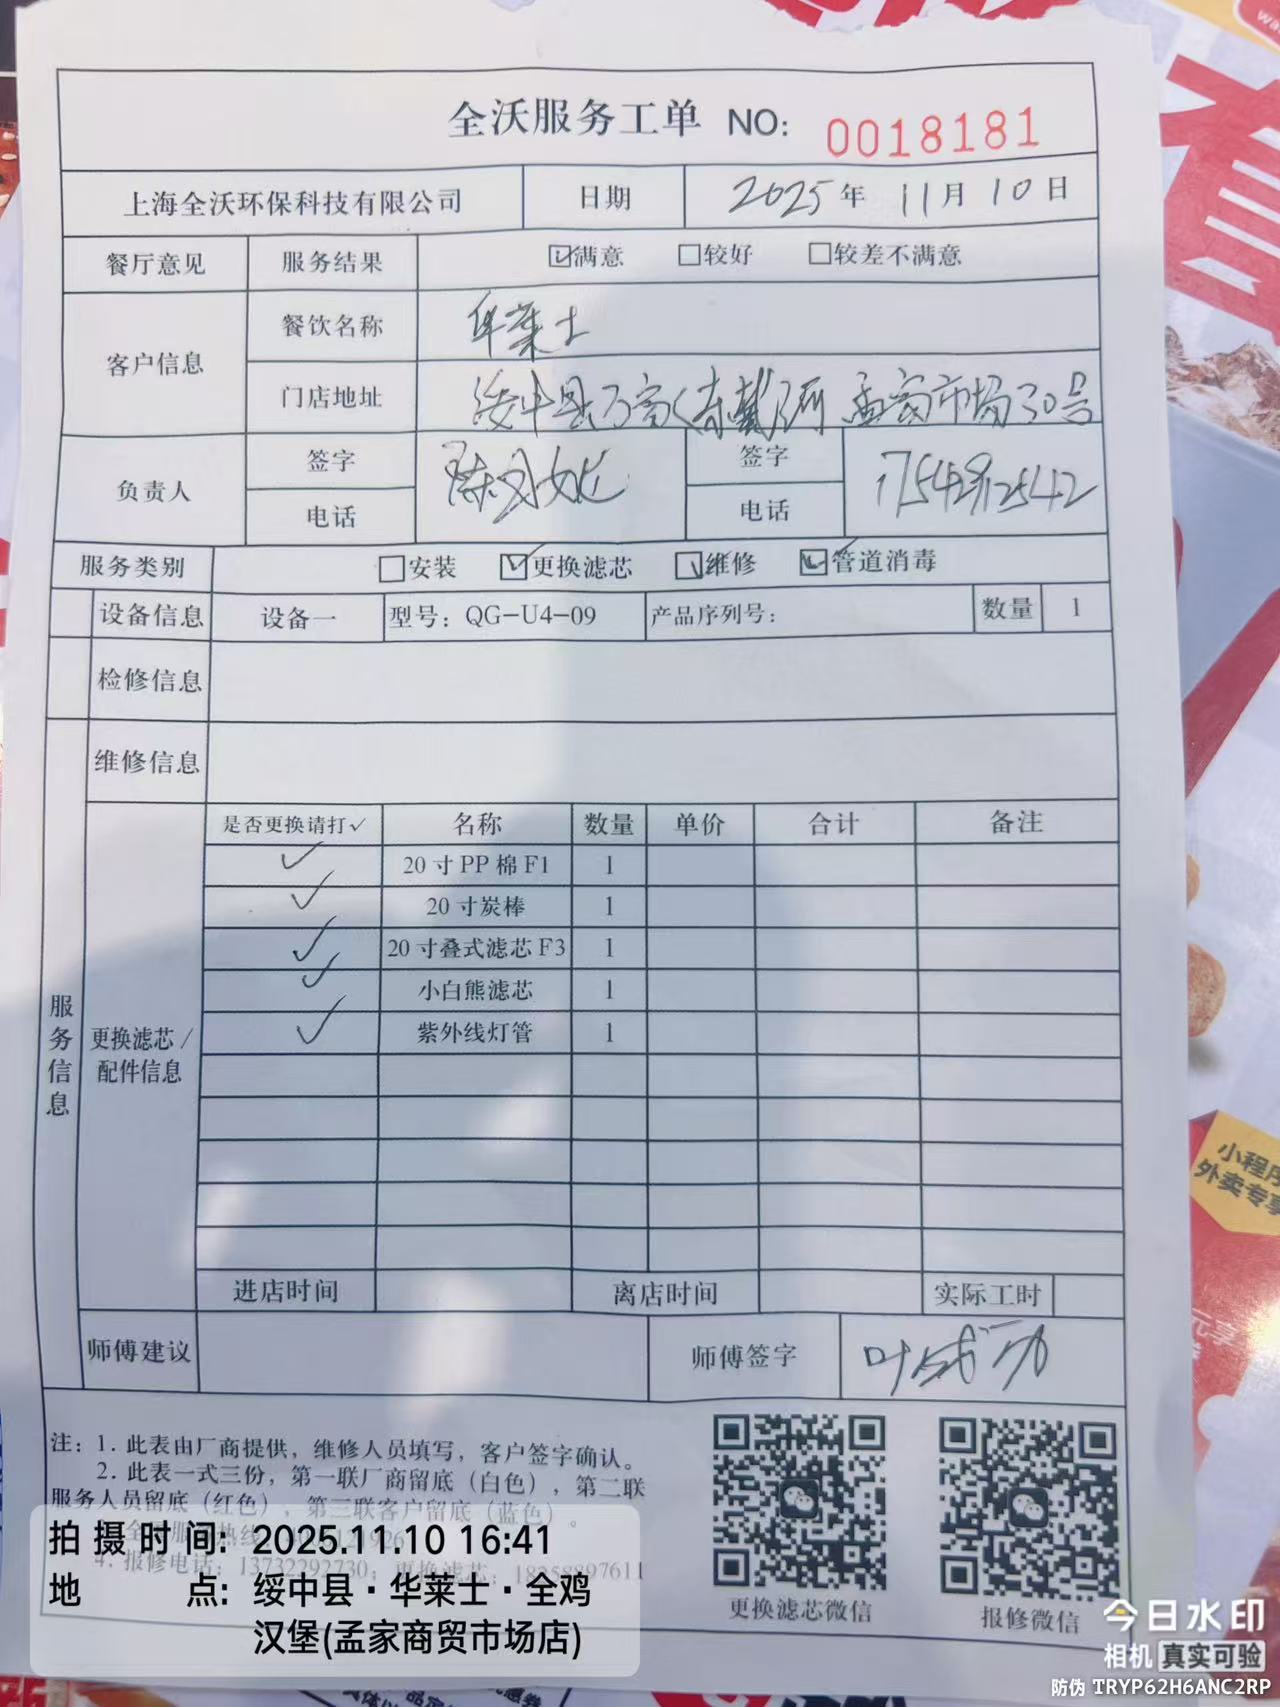 全沃服务工单 NO: 0018181
上海全沃环保科技有限公司 日期 2025年 11月 10日
餐厅意见 服务结果 ☑满意 □较好 □较差不满意
客户信息 餐饮名称 华莱士
门店地址 绥中县 市场30号
负责人 签字 签字
电话 电话
服务类别 □安装 ☑更换滤芯 ☑维修 ☑管道消毒
设备信息 设备一 型号：QG-U4-09 产品序列号： 数量 1
检修信息
维修信息
服务信息 更换滤芯/配件信息
是否更换请打✓ 名称 数量 单价 合计 备注
✓ 20寸PP棉F1 1
✓ 20寸炭棒 1
✓ 20寸叠式滤芯F3 1
✓ 小白熊滤芯 1
✓ 紫外线灯管 1
进店时间 离店时间 实际工时
师傅建议 师傅签字 叶成功
注：1.此表由厂商提供，维修人员填写，客户签字确认。
2.此表一式三份，第一联厂商留底（白色），第二联
服务人员留底（红色），第三联客户留底（蓝色）。
4.报修电话：13732292730；更换滤芯：18258897611
更换滤芯微信 报修微信
拍摄时间：2025.11.10 16:41
地点：绥中县·华莱士·全鸡
汉堡(孟家商贸市场店)
今日水印
相机 真实可验
防伪 TRYP62H6ANC2RP
小程序
外卖专享